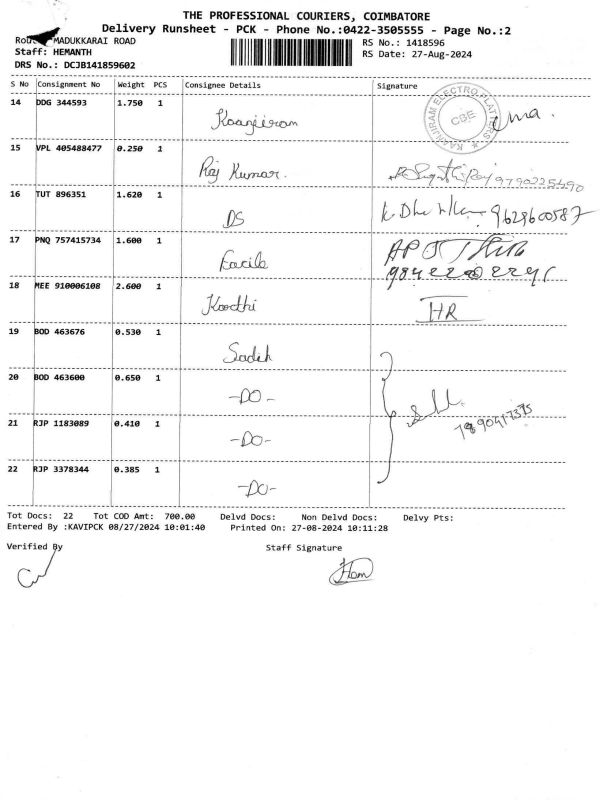 THE PROFESSIONAL COURIERS, COIMBATORE
Delivery Runsheet - PCK - Phone No.:0422-3505555 - Page No.:2
MADUKKARAI ROAD
RS No.: 1418596
Staff: HEMANTH
RS Date: 27-Aug-2024
DRS No.: DCJB141859602
S No Consignment No Weight PCS Consignee Details Signature
14 DDG 344593 1.750 1
KAANJIRAM ELECTRO PLATERS CBE
15 VPL 405488477 0.250 1 Raj Kumar. 9790225490
16 TUT 896351 1.620 1 DS 9629600587
17 PNQ 757415734 1.600 1
18 MEE 910006108 2.600 1 HR
19 BOD 463676 0.530 1 Sadih
20 BOD 463600 0.650 1 -DO-
21 RJP 1183089 0.410 1 -DO-
22 RJP 3378344 0.385 1 -DO-
Tot Docs: 22 Tot COD Amt: 700.00 Delvd Docs: Non Delvd Docs: Delvy Pts:
Entered By :KAVIPCK 08/27/2024 10:01:40 Printed On: 27-08-2024 10:11:28
Verified By Staff Signature
Ham